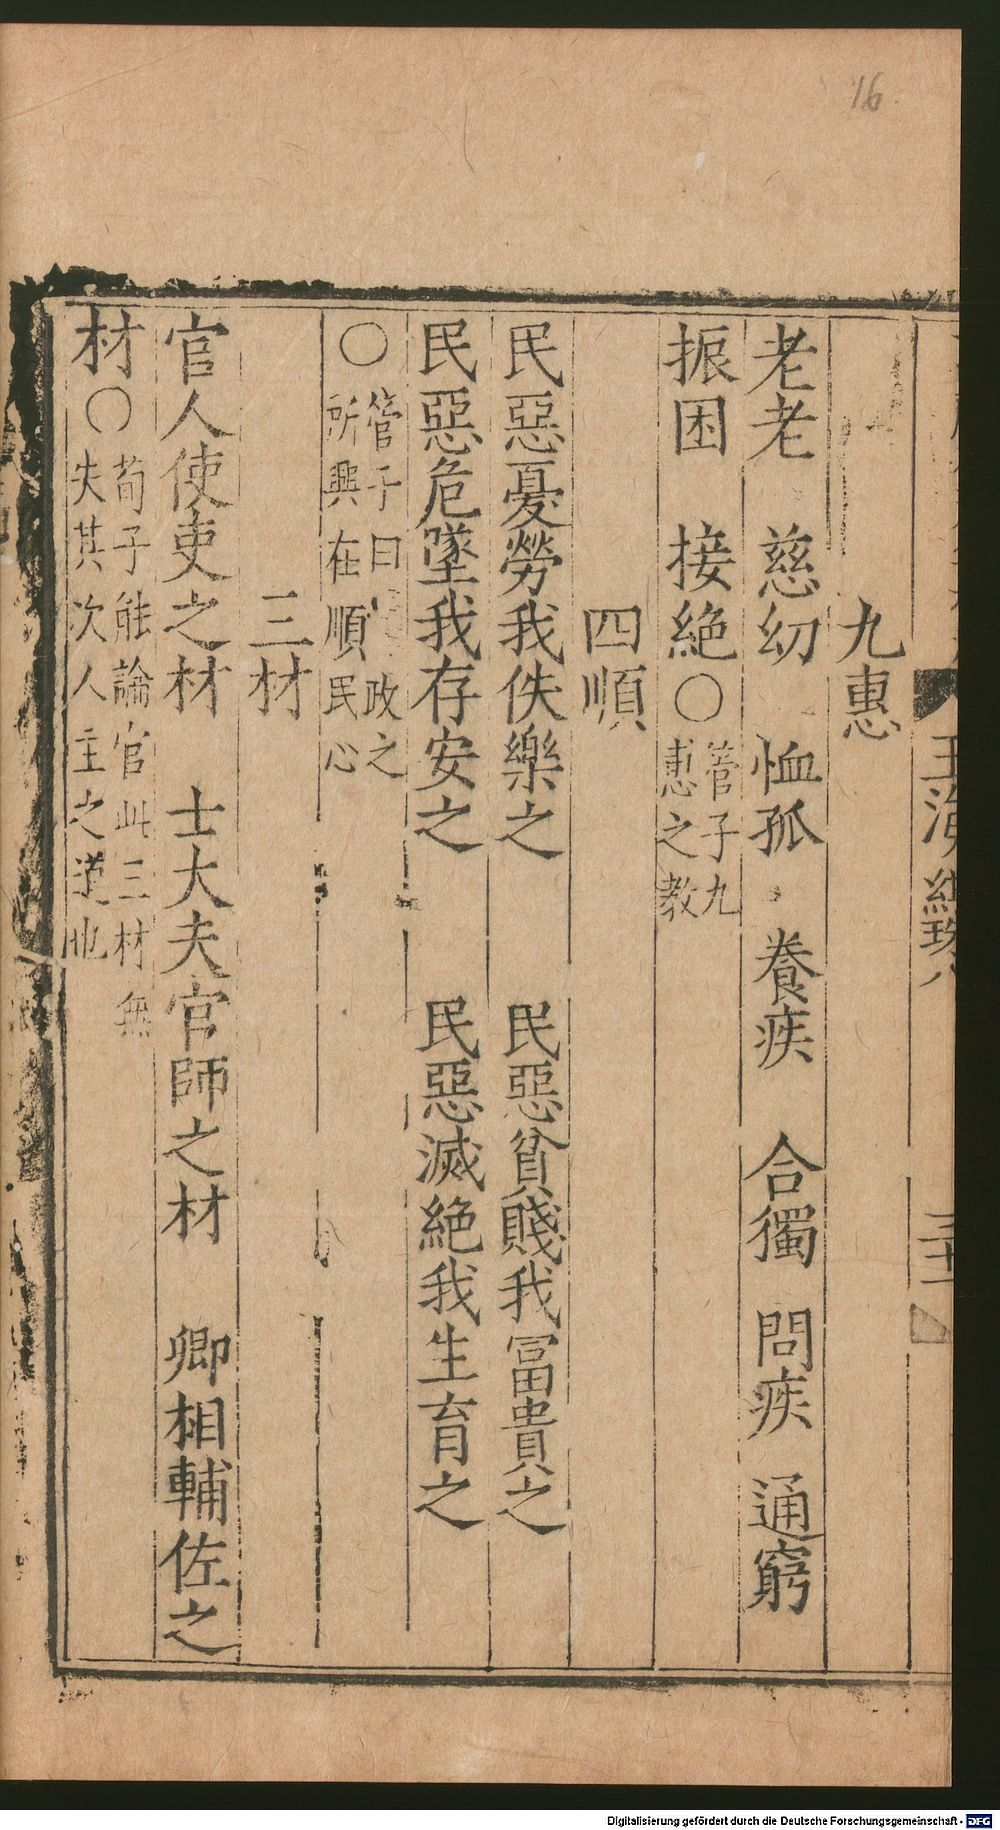 16
玉海纂珠八
三十一
九惠
老老 慈幼 恤孤 養疾 合獨 問疾 通窮
振困 接絶〇管子九
惠之教
四順
民惡憂勞我佚樂之 民惡貧賤我冨貴之
民惡危墜我存安之 民惡滅絶我生育之
〇管子曰 政之
所興在順民心
三材
官人使吏之材 士大夫官師之材 卿相輔佐之
材〇荀子能論官此三材無
失其次人主之道也
Digitalisierung gefördert durch die Deutsche Forschungsgemeinschaft - DFG